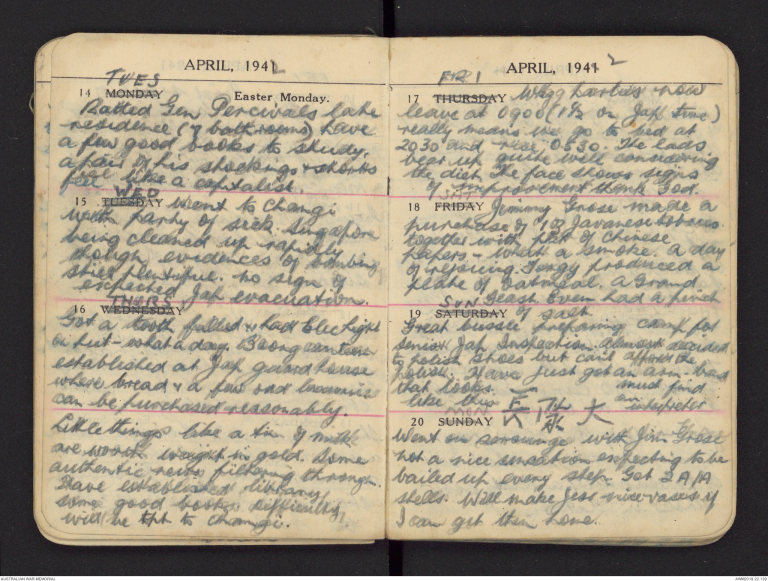 APRIL, 1942
TUES
14 MONDAY Easter Monday.
Ratted Gen Percivals late
residence (7 bathrooms) have
a few good books to study,
a pair of his stockings & shorts
feel like a capitalist.
WED
15 TUESDAY Went to Changi
with party of sick. Singapore
being cleaned up rapidly
though evidences of bombing
still plentiful. No sign of
expected Jap evacuation.
THURS
16 WEDNESDAY
Got a tooth filled & had Elec light
in hut - what a day. Boong canteen
established at Jap guard house
where bread & a few odd luxuries
can be purchased reasonably.
Little things like a tin of milk
are worth weight in gold. Some
authentic news filtering through.
Have established library
some good books, difficulty
will be tpt to Changi.
APRIL, 1942
FRI
17 THURSDAY Whizz parties now
leave at 0900 (1½ on Jap time)
really means we go to bed at
2030 and rise 0630. The lads
bear up quite well considering
the diet. The face shows signs
of improvement thank God.
SAT
18 FRIDAY Jimmy Grose made a
purchase of 1 oz Javanese tobacco
together with pkt of Chinese
papers - what a smoke. A day
of rejoicing. Tongy produced a
plate of oatmeal. A Grand
feast. Even had a pinch
of salt.
SUN
19 SATURDAY
Great bustle preparing camp for
senior Jap Inspection. Almost decided
to polish shoes but can't afford the
polish. Have just got an arm-band
that looks
like this 大
must find
an interpreter
MON
20 SUNDAY
Went on scrounge with Jim Grose
not a nice sensation expecting to be
bailed up every step. Got 2 A/A
shells. Will make Jess nice vases if
I can get them home.
AUSTRALIAN WAR MEMORIAL